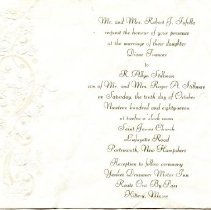 Mr. and Mrs. Robert J.
request the honour of your presence
at the marriage of their daughter
Diane Frances
to
R. Allyn Stillman
son of Mr. and Mrs. Roger A. Stillman
on Saturday, the tenth day of October
Nineteen hundred and eighty-seven
at twelve o'clock noon
Saint James Church
Lafayette Road
Portsmouth, New Hampshire
Reception to follow ceremony
Yankee Drummer Motor Inn
Route One By Pass
Kittery, Maine